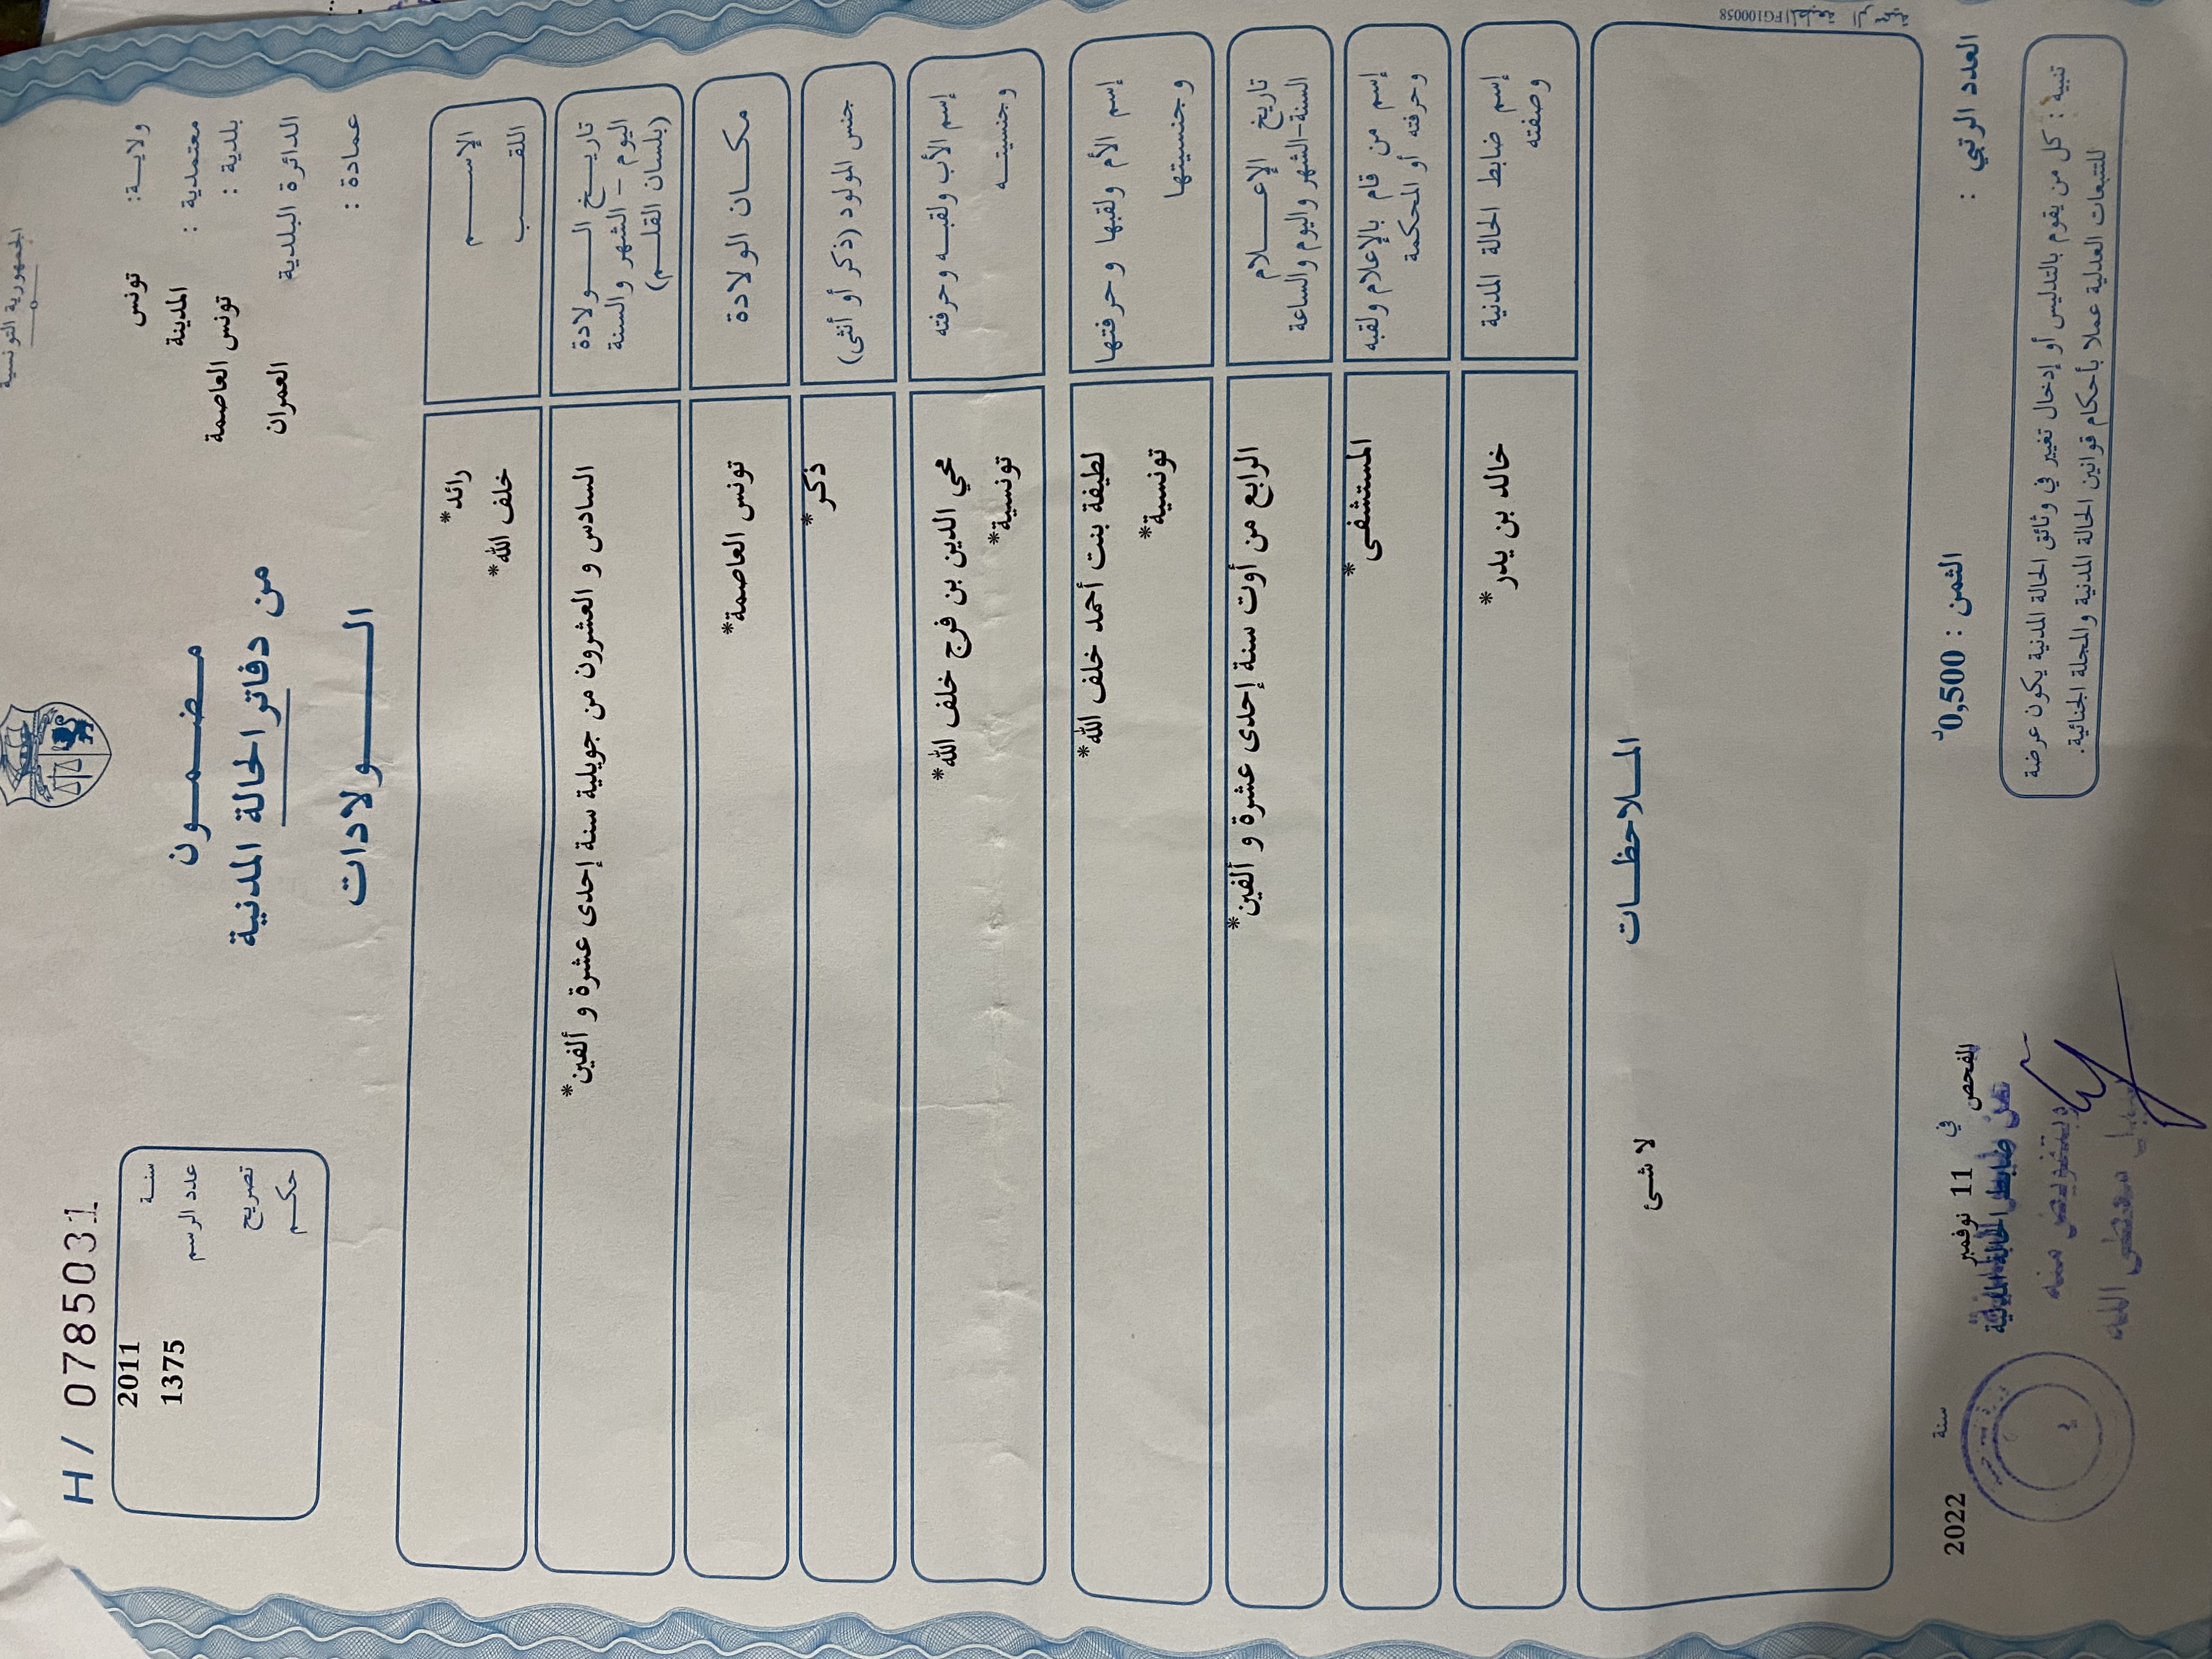 الجمهورية التونسية
H/ 0785031
ولايــة: تونس
معتمدية : المدينة
بلدية : تونس العاصمة
الدائرة البلدية العمران
عمادة :
مـضـمــون
من دفاتر الحالة المدنية
الــــولادات
سنــة 2011
عدد الرسم 1375
تصريح
حكــم
الإســــم رائد*
اللقــــب خلف الله*
تاريــخ الــــولادة
اليوم - الشهر والسنة
(بلسان القلــم)
السادس و العشرون من جويلية سنة إحدى عشرة و ألفين*
مكــان الولادة تونس العاصمة*
جنس المولود (ذكر أو أنثى) ذكر*
إسم الأب ولقبــه وحرفته محي الدين بن فرج خلف الله*
وجنسيتــه تونسية*
إسم الأم ولقبها وحرفتها لطيفة بنت أحمد خلف الله*
وجنسيتها تونسية*
تاريخ الإعــــلام
السنة-الشهر واليوم والساعة
الرابع من أوت سنة إحدى عشرة و ألفين*
إسم من قام بالإعلام ولقبه
وحرفته أو المحكمة
المستشفى*
إسم ضابط الحالة المدنية
وصفته
خالد بن يدر*
المــلاحظــات
لا شئ
العدد الرتبي :
الثمن : 0,500د
الفحص في 11 نوفمبر سنة 2022
ضابط الحالة المدنية
بتفويض منه
تنبيه : كل من يقوم بالتدليس أو إدخال تغيير في وثائق الحالة المدنية يكون عرضة
للتتبعات العدلية عملا بأحكام قوانين الحالة المدنية والمجلة الجنائية.
FG100058